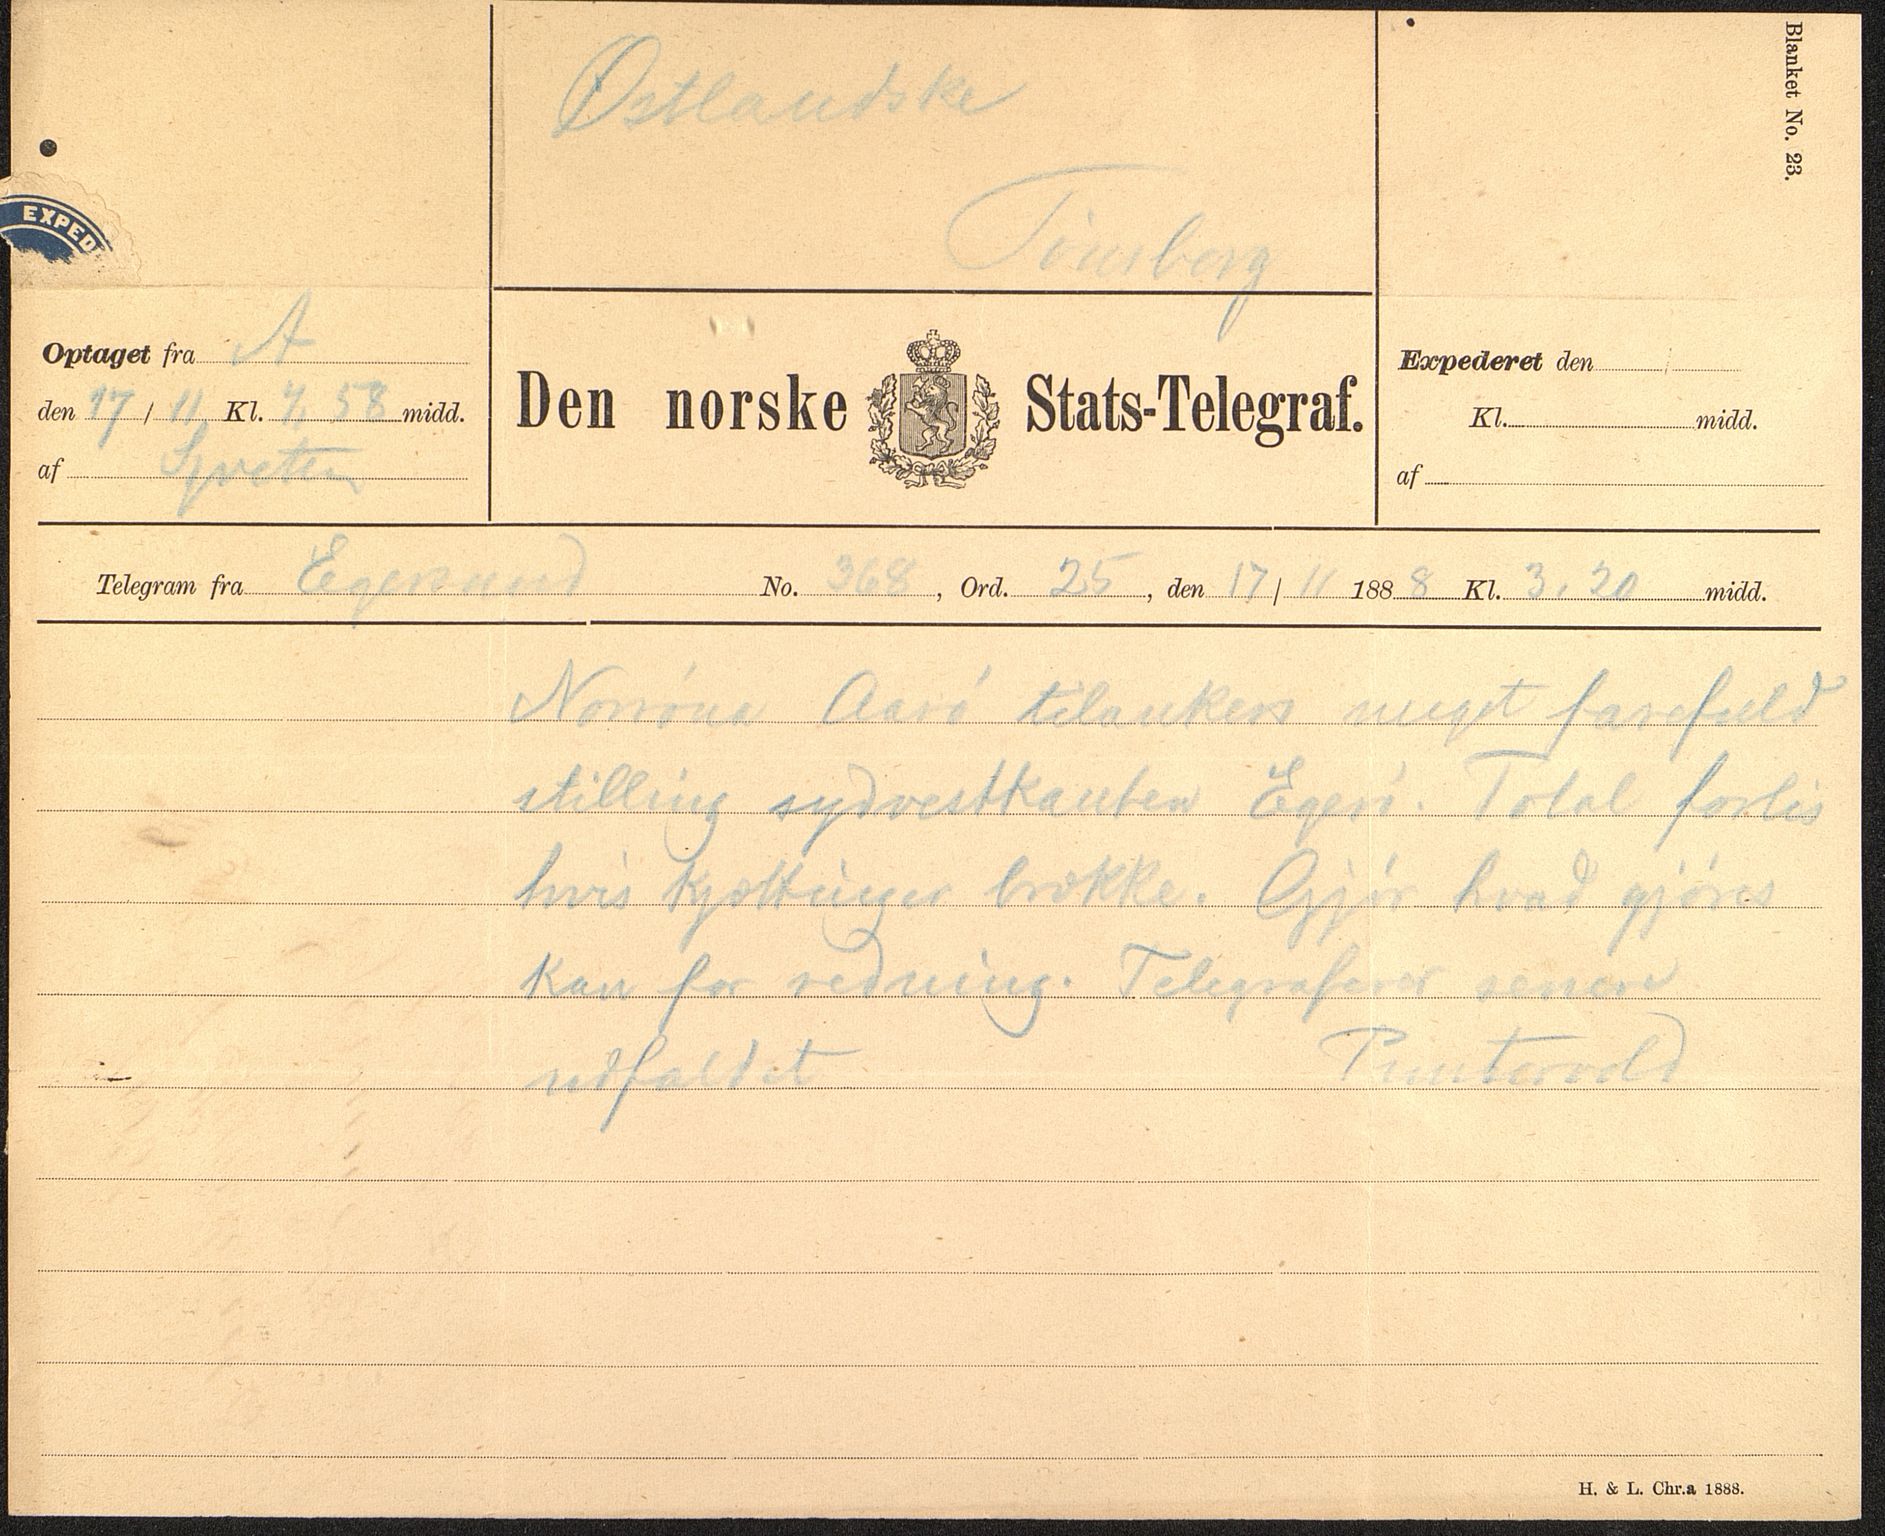 Blanket No. 23.
Østlandske
Tönsberg
EXPED
Optaget fra A
den 17 / 11 Kl. 4, 58 midd.
af
Den norske Stats-Telegraf.
Expederet den /
Kl. midd.
af
Telegram fra Egersund No. 368, Ord. 25, den 17 / 11 1888 Kl. 3,20 midd.
Norröna Aarö tilankers meget farefuld
stilling sydvestkanten Egerö. Total forlis
hvis kjættinger brække. Gjör hvad gjöres
kan for redning. Telegraferer senere
udfaldet Puntervold
H. & L. Chr.a 1888.